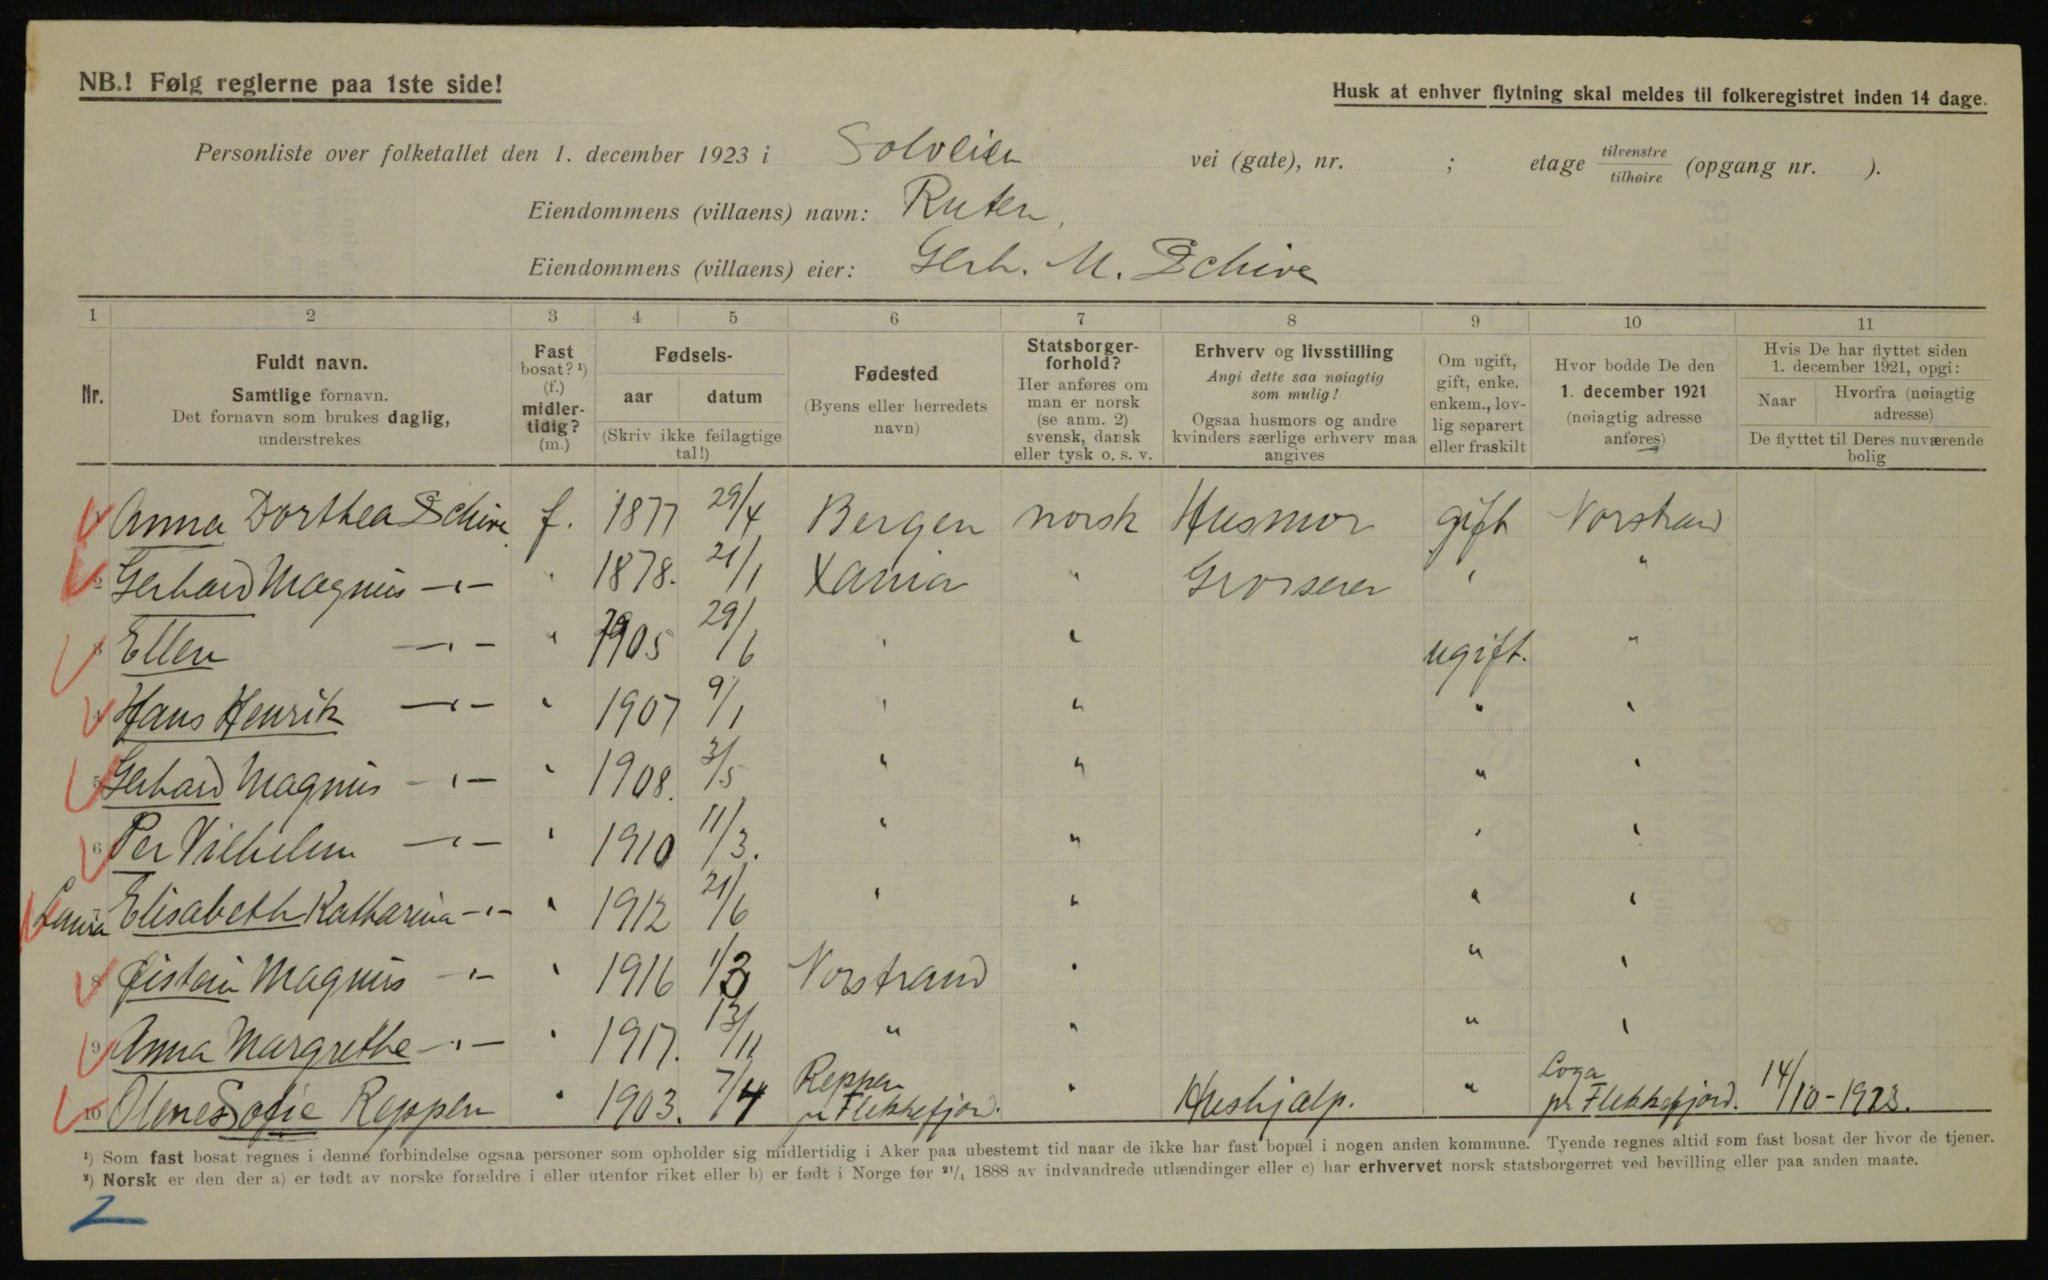 NB.! Følg reglerne paa 1ste side!
Husk at enhver flytning skal meldes til folkeregistret inden 14 dage.
Personliste over folketallet den 1. december 1923 i Solveien vei (gate), nr. ; etage tilvenstre / tilhøire (opgang nr. ).
Eiendommens (villaens) navn: Ruten,
Eiendommens (villaens) eier: Gerh. M. Schive
1 2 3 4 5 6 7 8 9 10 11
Nr.
Fuldt navn.
Samtlige fornavn.
Det fornavn som brukes daglig,
understrekes
Fast
bosat? ¹)
(f.)
midler-
tidig?
(m.)
Fødsels-
aar datum
(Skriv ikke feilagtige
tal!)
Fødested
(Byens eller herredets
navn)
Statsborger-
forhold?
Her anføres om
man er norsk
(se anm. 2)
svensk, dansk
eller tysk o. s. v.
Erhverv og livsstilling
Angi dette saa nøiagtig
som mulig!
Ogsaa husmors og andre
kvinders særlige erhverv maa
angives
Om ugift,
gift, enke.
enkem., lov-
lig separert
eller fraskilt
Hvor bodde De den
1. december 1921
(nøiagtig adresse
anføres)
Hvis De har flyttet siden
1. december 1921, opgi:
Naar Hvorfra (nøiagtig
adresse)
De flyttet til Deres nuværende
bolig
1 Anna Dorthea Schive f. 1877 29/4 Bergen norsk Husmor gift Norstrand
2 Gerhard Magnus -"- " 1878. 21/1 Xania " Grosserer " "
3 Ellen -"- " 1905 29/6 " " ugift. "
4 Hans Henrik -"- " 1907 9/1 " " " "
5 Gerhard Magnus -"- " 1908. 3/5 " " " "
6 Per Vilhelm -"- " 1910 11/3. " " " "
7 Laura Elisabeth Katharina -"- " 1912 21/6 " " " "
8 Øistein Magnus -"- " 1916 1/3 Norstrand " " "
9 Anna Margrethe -"- " 1917. 13/11 " " " "
10 Olene Sofie Reppen " 1903. 7/4 Reppen pr Flekkefjord. " Hushjælp. " Loga pr Flekkefjord. 14/10-1923.
¹) Som fast bosat regnes i denne forbindelse ogsaa personer som opholder sig midlertidig i Aker paa ubestemt tid naar de ikke har fast bopæl i nogen anden kommune. Tyende regnes altid som fast bosat der hvor de tjener.
²) Norsk er den der a) er født av norske forældre i eller utenfor riket eller b) er født i Norge før ²¹/₄ 1888 av indvandrede utlændinger eller c) har erhvervet norsk statsborgerret ved bevilling eller paa anden maate.
2